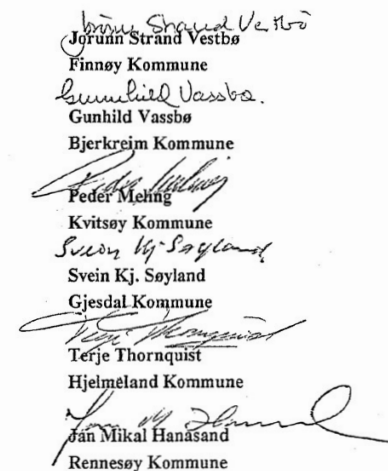 Jorunn Strand Vestbø
Jorunn Strand Vestbø
Finnøy Kommune
Gunnhild Vassbø.
Gunhild Vassbø
Bjerkreim Kommune
Peder Meling
Peder Meling
Kvitsøy Kommune
Svein Kj. Søyland
Svein Kj. Søyland
Gjesdal Kommune
Terje Thornquist
Terje Thornquist
Hjelmeland Kommune
Jan M
Jan Mikal Hanasand
Rennesøy Kommune